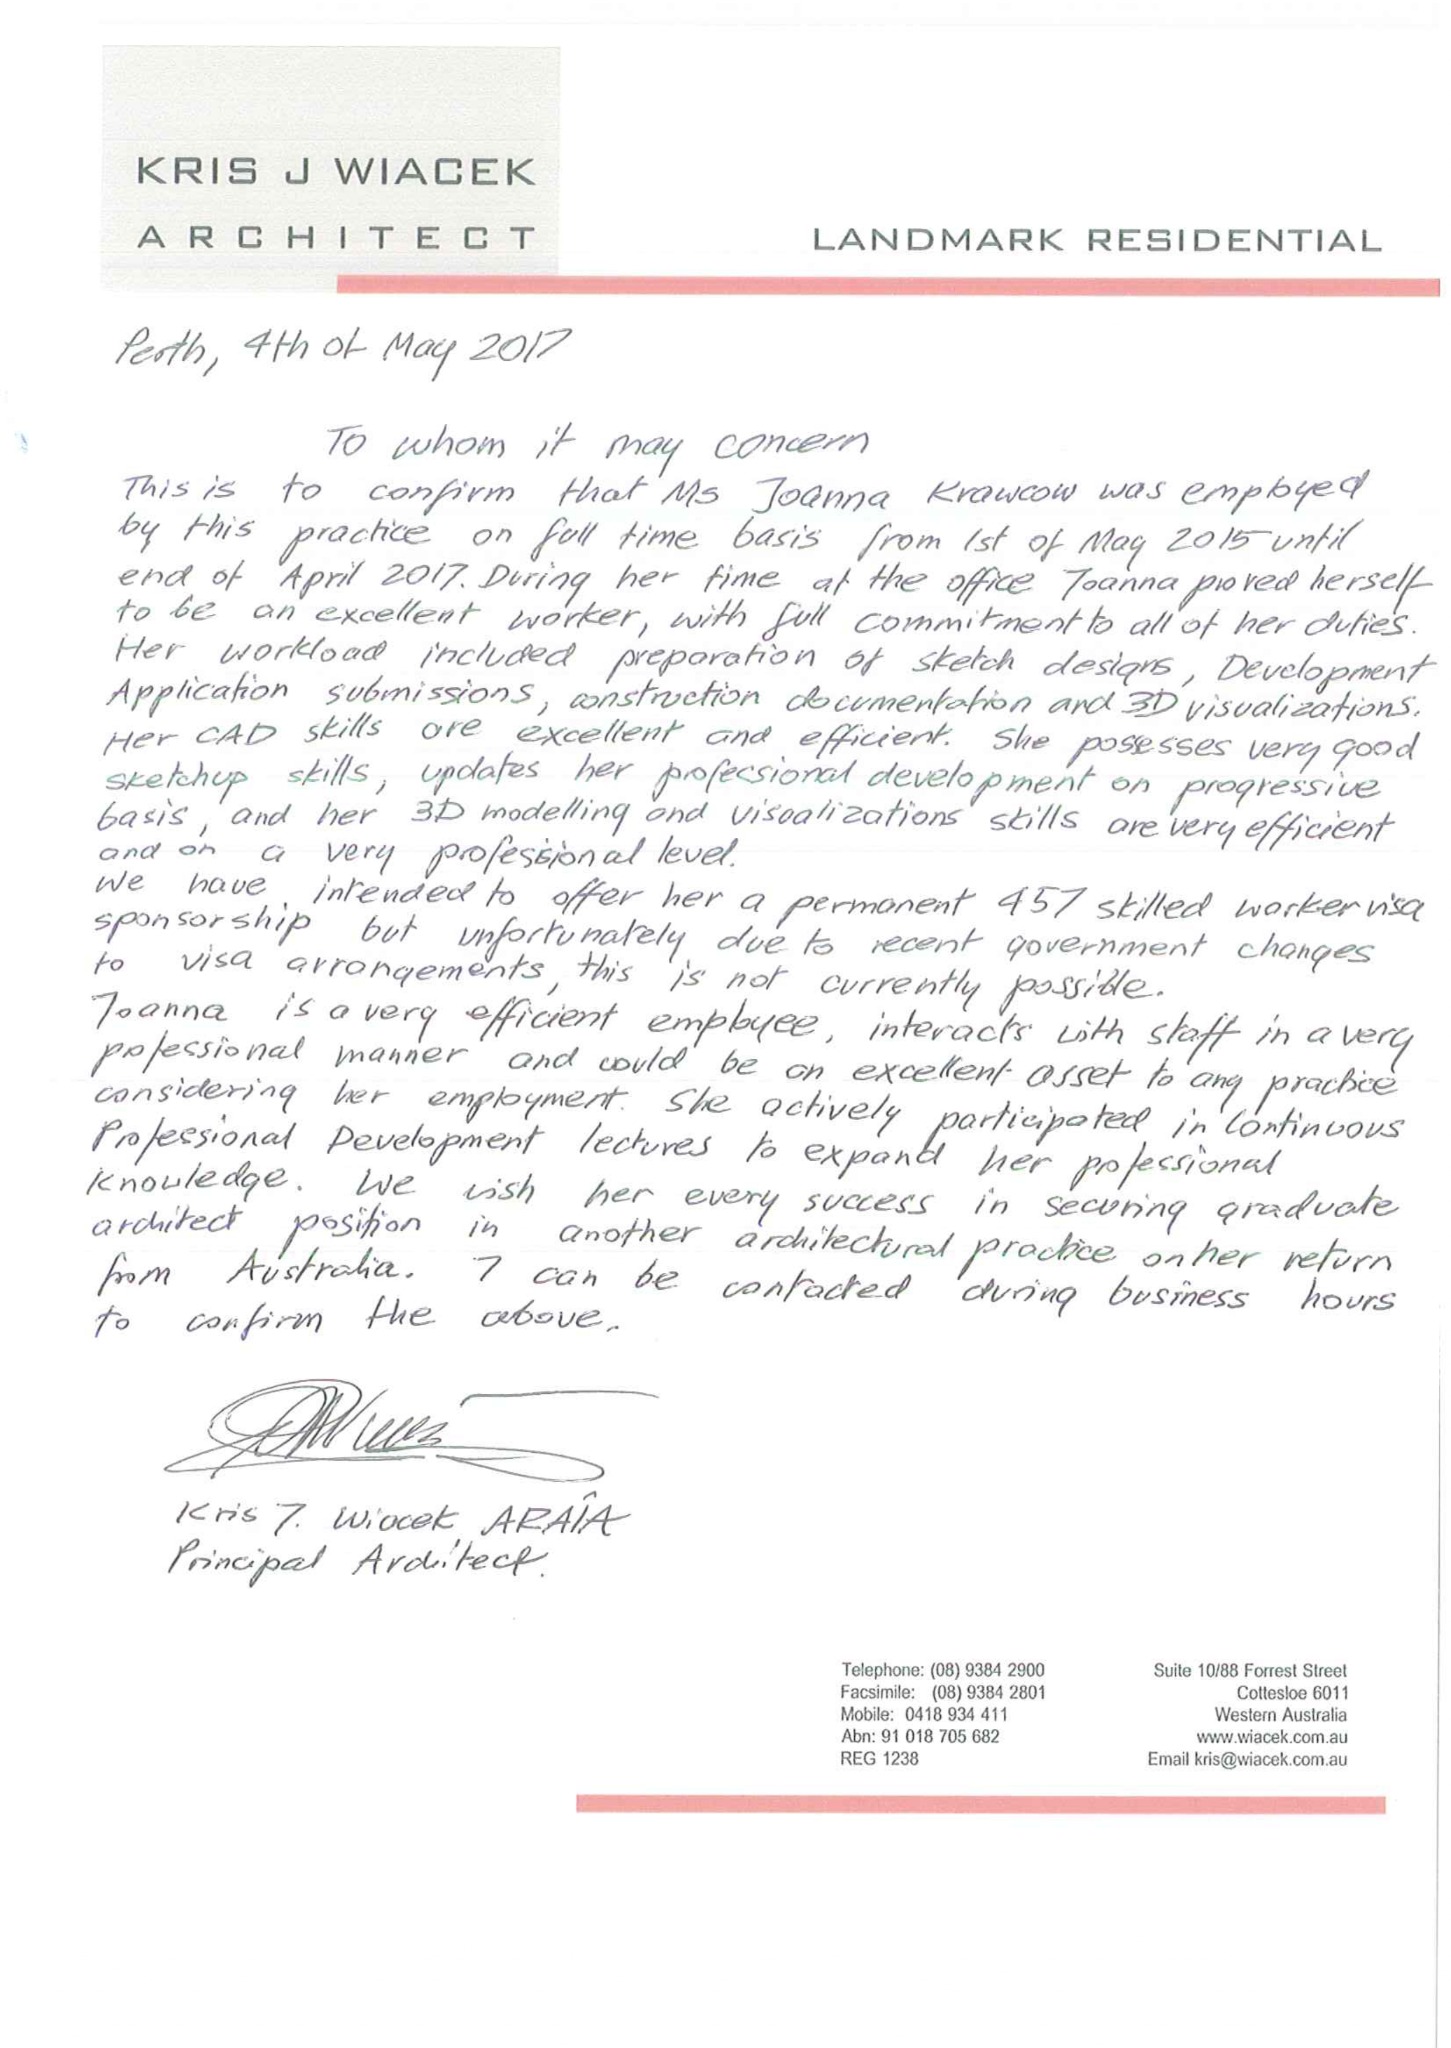 KRIS J WIACEK
ARCHITECT
LANDMARK RESIDENTIAL
Perth, 4th of May 2017
To whom it may concern
This is to confirm that Ms Joanna Krawcow was employed
by this practice on full time basis from 1st of May 2015 until
end of April 2017. During her time at the office Joanna proved herself
to be an excellent worker, with full commitment to all of her duties.
Her workload included preparation of sketch designs, Development
Application submissions, construction documentation and 3D visualizations.
Her CAD skills are excellent and efficient. She possesses very good
sketchup skills, updates her professional development on progressive
basis, and her 3D modelling and visualizations skills are very efficient
and on a very professional level.
We have intended to offer her a permanent 457 skilled worker visa
sponsorship but unfortunately due to recent government changes
to visa arrangements, this is not currently possible.
Joanna is a very efficient employee, interacts with staff in a very
professional manner and could be an excellent asset to any practice
considering her employment. She actively participated in Continuous
Professional Development lectures to expand her professional
knowledge. We wish her every success in securing graduate
architect position in another architectural practice on her return
from Australia. I can be contacted during business hours
to confirm the above.
Kris J. Wiacek ARAIA
Principal Architect.
Telephone: (08) 9384 2900
Facsimile: (08) 9384 2801
Mobile: 0418 934 411
Abn: 91 018 705 682
REG 1238
Suite 10/88 Forrest Street
Cottesloe 6011
Western Australia
www.wiacek.com.au
Email kris@wiacek.com.au